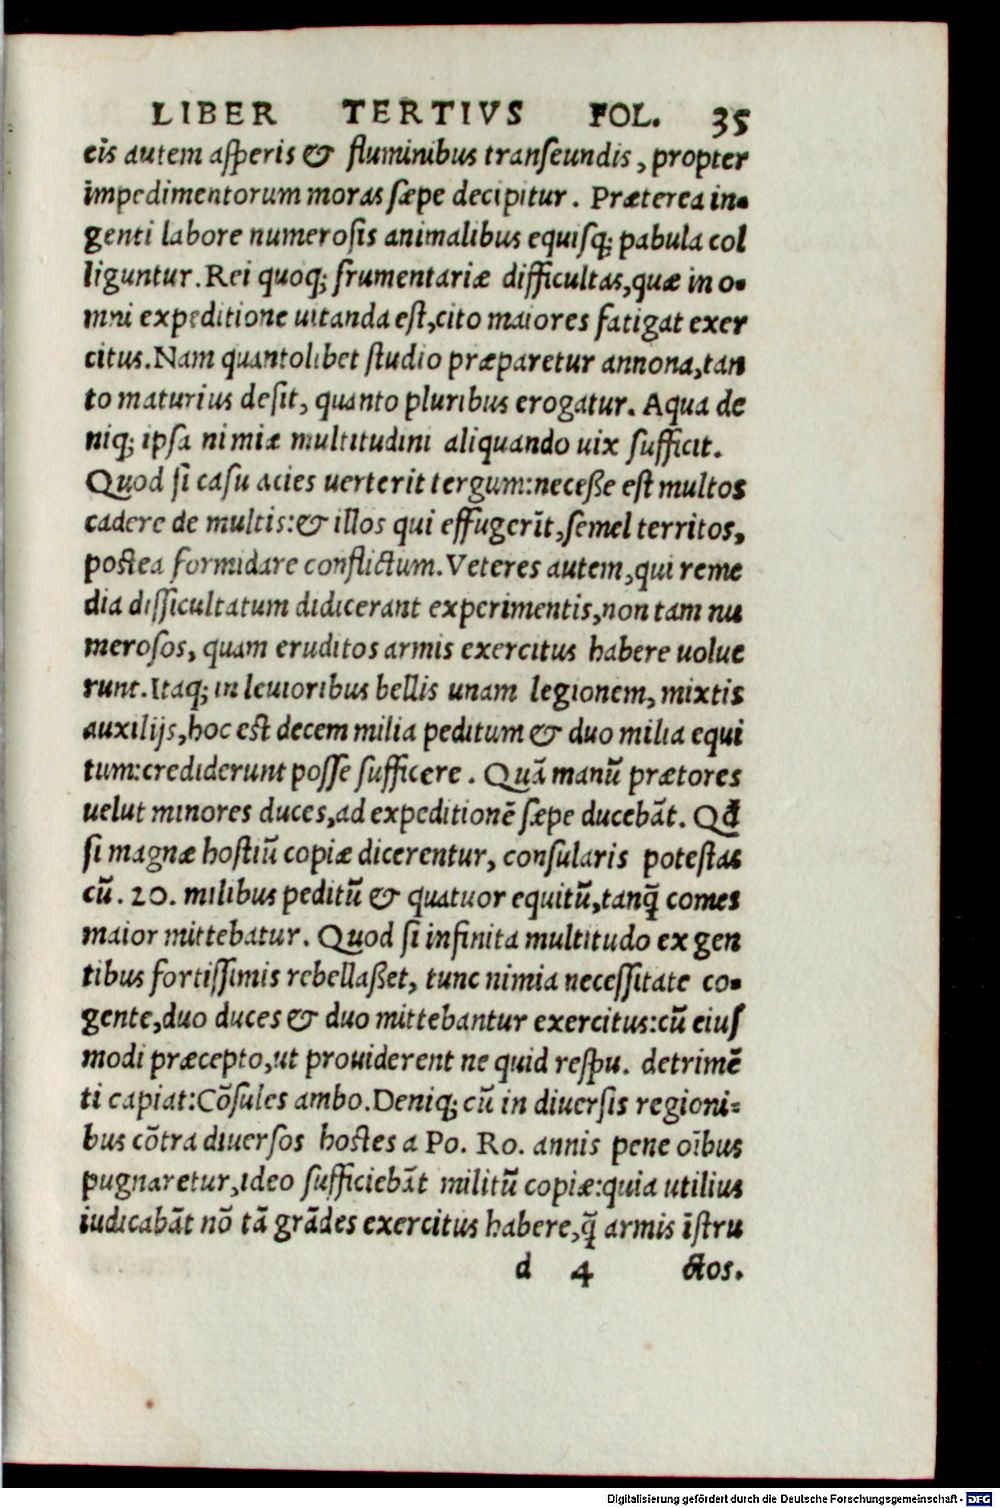 LIBER TERTIVS FOL. 35
cis autem aſperis & fluminibus tranſeundis, propter
impedimentorum moras ſæpe decipitur. Præterea in-
genti labore numeroſis animalibus equiſq; pabula col
liguntur. Rei quoq; frumentariæ difficultas, quæ in o-
mni expeditione uitanda eſt, cito maiores fatigat exer
citus. Nam quantolibet ſtudio præparetur annona, tan
to maturius deſit, quanto pluribus erogatur. Aqua de
niq; ipſa nimiæ multitudini aliquando uix ſufficit.
Quod ſi caſu acies uerterit tergum: neceße eſt multos
cadere de multis: & illos qui effugerīt, ſemel territos,
poſtea formidare conflictum. Veteres autem, qui reme
dia difficultatum didicerant experimentis, non tam nu
meroſos, quam eruditos armis exercitus habere uolue
runt. Itaq; in leuioribus bellis unam legionem, mixtis
auxilijs, hoc eſt decem milia peditum & duo milia equi
tum: crediderunt poſſe ſufficere. Quā manū prætores
uelut minores duces, ad expeditionē ſæpe ducebāt. Qđ
ſi magnæ hoſtiū copiæ dicerentur, conſularis poteſtas
cū. 20. milibus peditū & quatuor equitū, tanq̄ comes
maior mittebatur. Quod ſi infinita multitudo ex gen
tibus fortiſſimis rebellaßet, tunc nimia neceſſitate co-
gente, duo duces & duo mittebantur exercitus: cū eiuſ
modi præcepto, ut prouiderent ne quid reſpu. detrimē
ti capiat: Cōſules ambo. Deniq; cū in diuerſis regioni-
bus cōtra diuerſos hoſtes a Po. Ro. annis pene oībus
pugnaretur, ideo ſufficiebāt militū copiæ: quia utilius
iudicabāt nō tā grādes exercitus habere, q̄ armis īſtru
d 4 ctos.
Digitalisierung gefördert durch die Deutsche Forschungsgemeinschaft - DFG